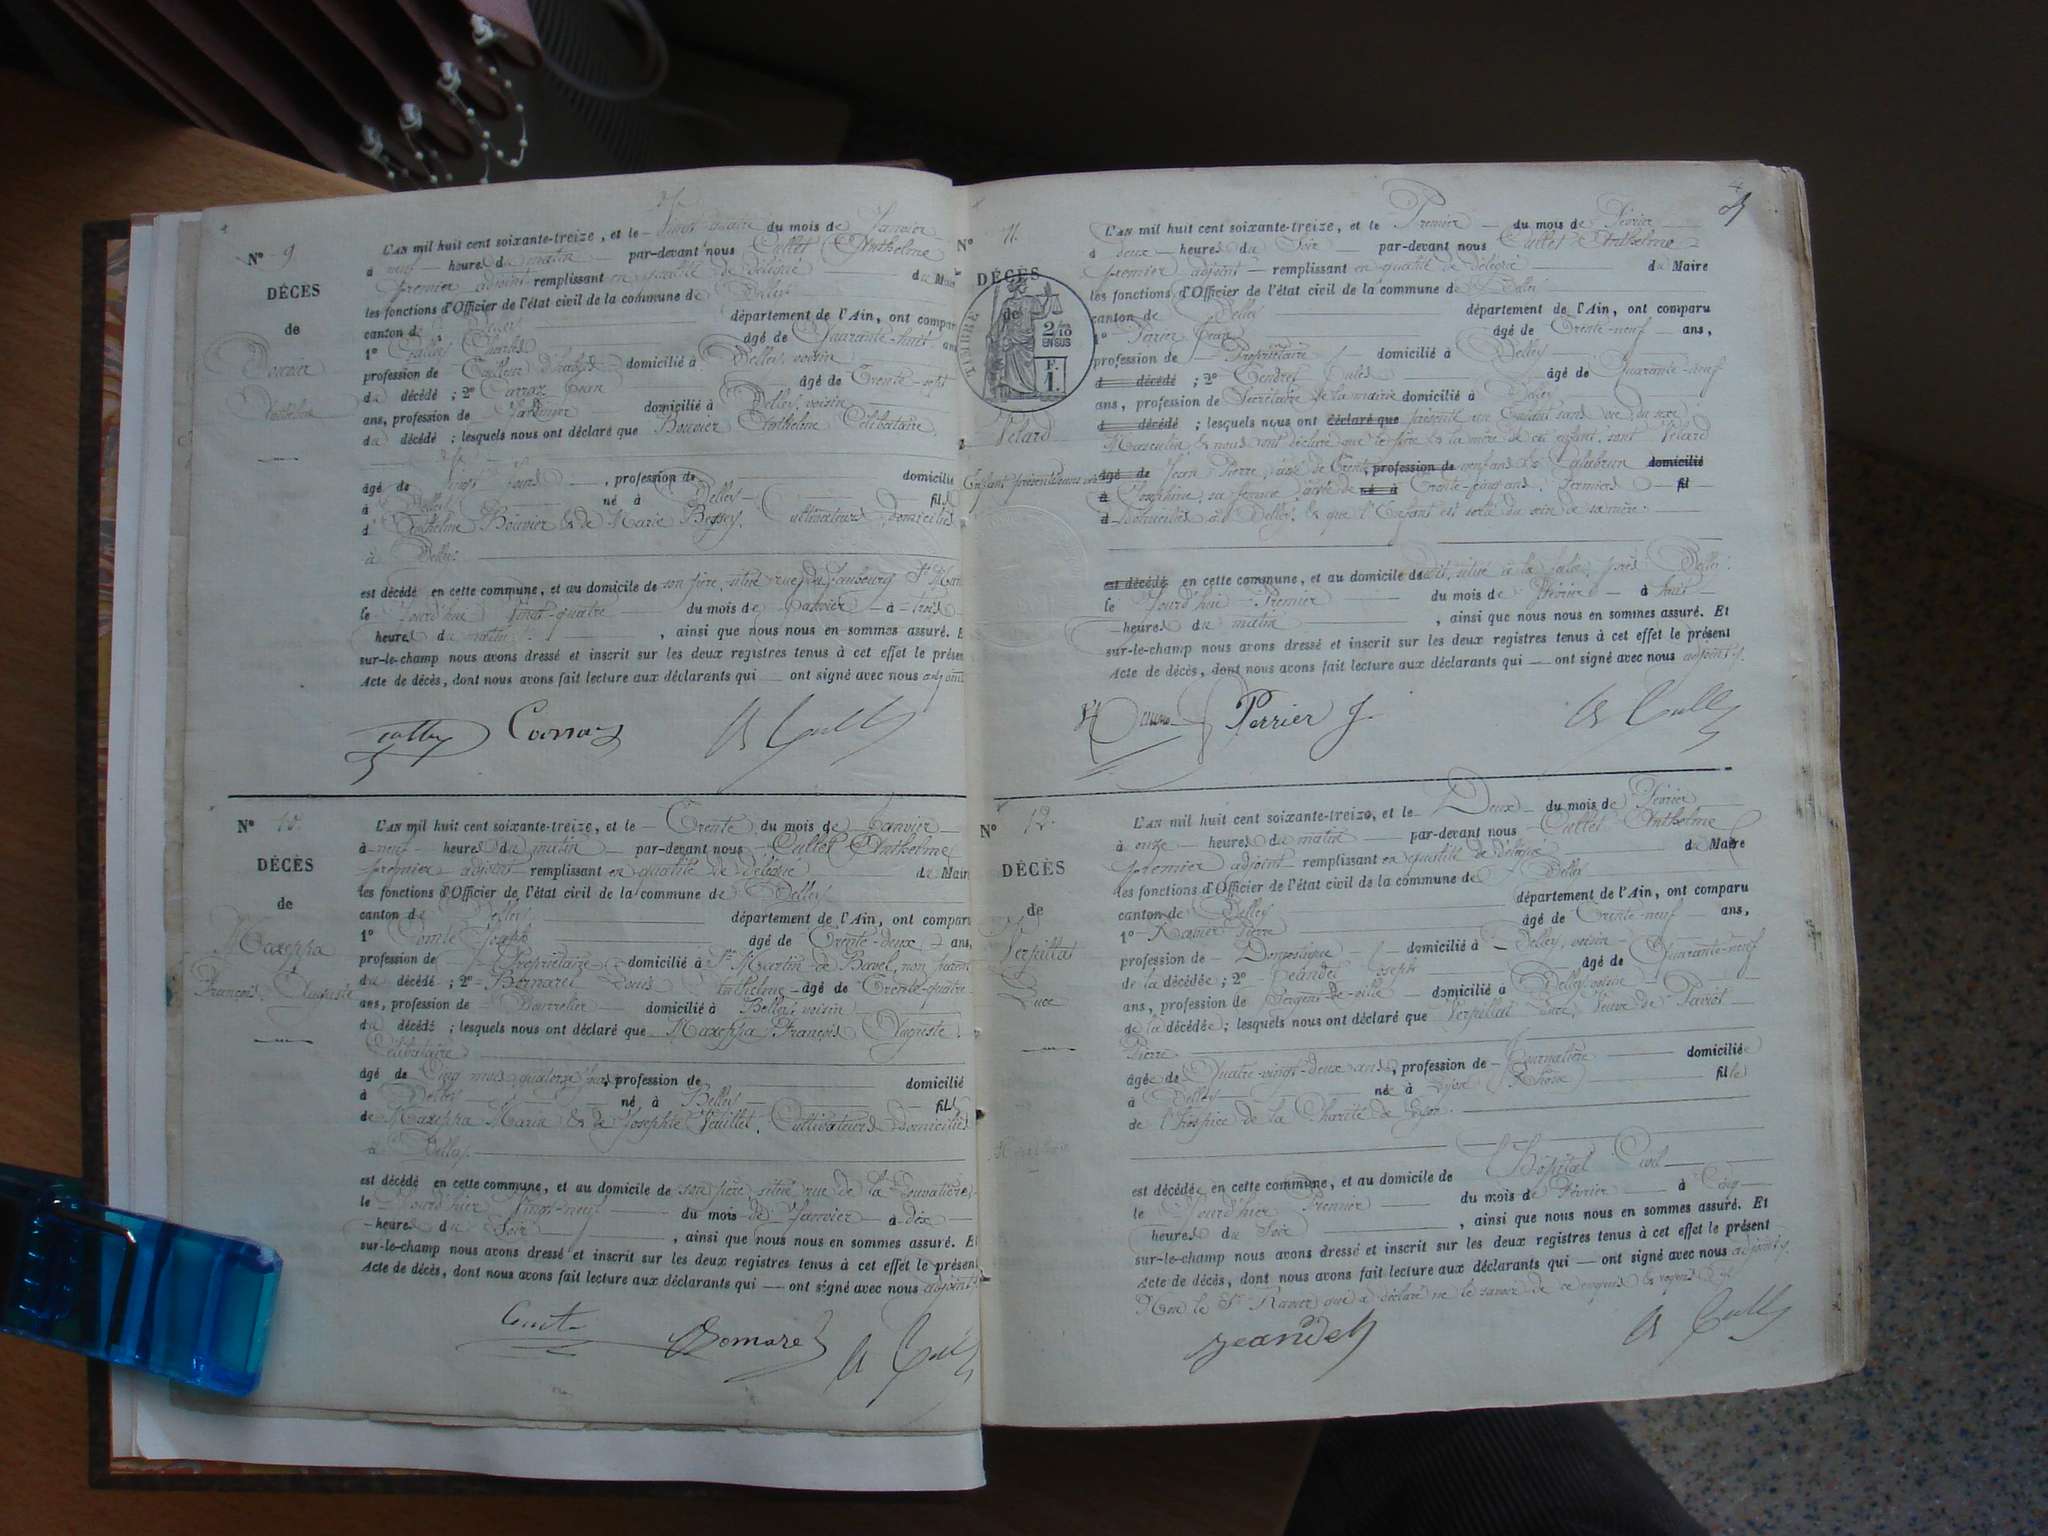 N° 9
DÉCÈS
de
Bouvier
Anthelme
L'AN mil huit cent soixante-treize, et le Vingt-quatre du mois de Janvier
à neuf heures du matin par-devant nous Cullet Anthelme
premier adjoint remplissant en qualité de délégué du Mair
les fonctions d'Officier de l'état civil de la commune de Belley
canton de Belley département de l'Ain, ont compar
1° Charles âgé de Quarante-huit ans
profession de Tailleur d'habits domicilié à Belley, voisin
du décédé ; 2° Carraz Jean âgé de Trente-sept
ans, profession de domicilié à Belley, voisin
du décédé ; lesquels nous ont déclaré que Bouvier Anthelme Célibataire
âgé de jours, profession de domicilié
à Belley né à Belley fils
d'Anthelme Bouvier & de Marie Cultivateurs domiciliés
à Belley
est décédé en cette commune, et au domicile de son père, situé rue du faubourg St
le Jourd'hui Vingt-quatre du mois de Janvier à trois
heures du matin, ainsi que nous nous en sommes assuré. E
sur-le-champ nous avons dressé et inscrit sur les deux registres tenus à cet effet le présen
Acte de décès, dont nous avons fait lecture aux déclarants qui — ont signé avec nous adjoint
N° 10.
DÉCÈS
de
Maxeppa
François Auguste
L'AN mil huit cent soixante-treize, et le Trente du mois de Janvier
à neuf heures du matin par-devant nous Cullet Anthelme
premier adjoint remplissant en qualité de délégué du Mair
les fonctions d'Officier de l'état civil de la commune de Belley
canton de Belley département de l'Ain, ont compar
1° Comte Joseph âgé de Trente-deux ans,
profession de Propriétaire domicilié à St Martin de Bavel, non parent
du décédé ; 2° Bornarel Louis Anthelme âgé de Trente-quatre
ans, profession de Bourrelier domicilié à Belley, voisin
du décédé ; lesquels nous ont déclaré que Maxeppa François Auguste
Célibataire
âgé de Cinq mois quatorze jours, profession de domicilié
à Belley né à Belley fils
de Maxeppa Marie & de Josephte Veuillet, Cultivateurs domiciliés
à Belley.
est décédé en cette commune, et au domicile de son père, situé rue de la
le Jourd'hier Vingt-neuf du mois de Janvier à dix
heures du Soir, ainsi que nous nous en sommes assuré. E
sur-le-champ nous avons dressé et inscrit sur les deux registres tenus à cet effet le présen
Acte de décès, dont nous avons fait lecture aux déclarants qui — ont signé avec nous adjoint
N° 11.
DÉCÈS
de
TIMBRE
2/10 EN SUS
F. 1.
Velard
Enfant présenté sans vie
L'AN mil huit cent soixante-treize, et le Premier du mois de Février
à deux heures du Soir par-devant nous Cullet Anthelme
premier adjoint remplissant en qualité de délégué du Maire
les fonctions d'Officier de l'état civil de la commune de Belley
canton de Belley département de l'Ain, ont comparu
1° Perrier Jean âgé de Trente-neuf ans,
profession de Propriétaire domicilié à Belley
d décédé ; 2° Jules âgé de Quarante-neuf
ans, profession de Secrétaire de la mairie domicilié à Belley
d décédé ; lesquels nous ont déclaré que présenté un Enfant sans vie, du sexe
Masculin, & nous ont déclaré que le père & la mère de cet enfant, sont Velard
âgé de Jean Pierre, âgé de Trente profession de neuf ans & domicilié
à Joséphine, sa femme, âgée de né à Trente-cinq ans, Fermiers fil
d domiciliés à Belley, & que l'Enfant est sorti du sein de sa mère.
est décédé en cette commune, et au domicile dudit, situé à près Belley
le Jourd'hui Premier du mois de Février à huit
heures du matin, ainsi que nous nous en sommes assuré. Et
sur-le-champ nous avons dressé et inscrit sur les deux registres tenus à cet effet le présent
Acte de décès, dont nous avons fait lecture aux déclarants qui — ont signé avec nous adjoint.
Perrier J.
N° 12.
DÉCÈS
de
Verpillat
Luce
L'AN mil huit cent soixante-treize, et le Deux du mois de Février
à onze heures du matin par-devant nous Cullet Anthelme
premier adjoint remplissant en qualité de délégué du Maire
les fonctions d'Officier de l'état civil de la commune de Belley
canton de Belley département de l'Ain, ont comparu
1° Ravier Pierre âgé de Trente-neuf ans,
profession de Domestique domicilié à Belley, voisin
de la décédée ; 2° Jeandet Joseph âgé de Quarante-neuf
ans, profession de Sergent de ville domicilié à Belley, voisin
de la décédée ; lesquels nous ont déclaré que Verpillat Luce, Veuve de Paviot
Pierre
âgée de Quatre-vingt-deux ans, profession de Journalière domiciliée
à Belley née à Lyon (Rhône) fille
de l'hospice de la Charité de Lyon.
est décédée en cette commune, et au domicile de l'Hôpital Civil
le Jourd'hier Premier du mois de Février à Cinq
heures du Soir, ainsi que nous nous en sommes assuré. Et
sur-le-champ nous avons dressé et inscrit sur les deux registres tenus à cet effet le présent
Acte de décès, dont nous avons fait lecture aux déclarants qui — ont signé avec nous adjoint,
Non le Sr Ravier qui a déclaré ne le savoir de ce enquis
Jeandet